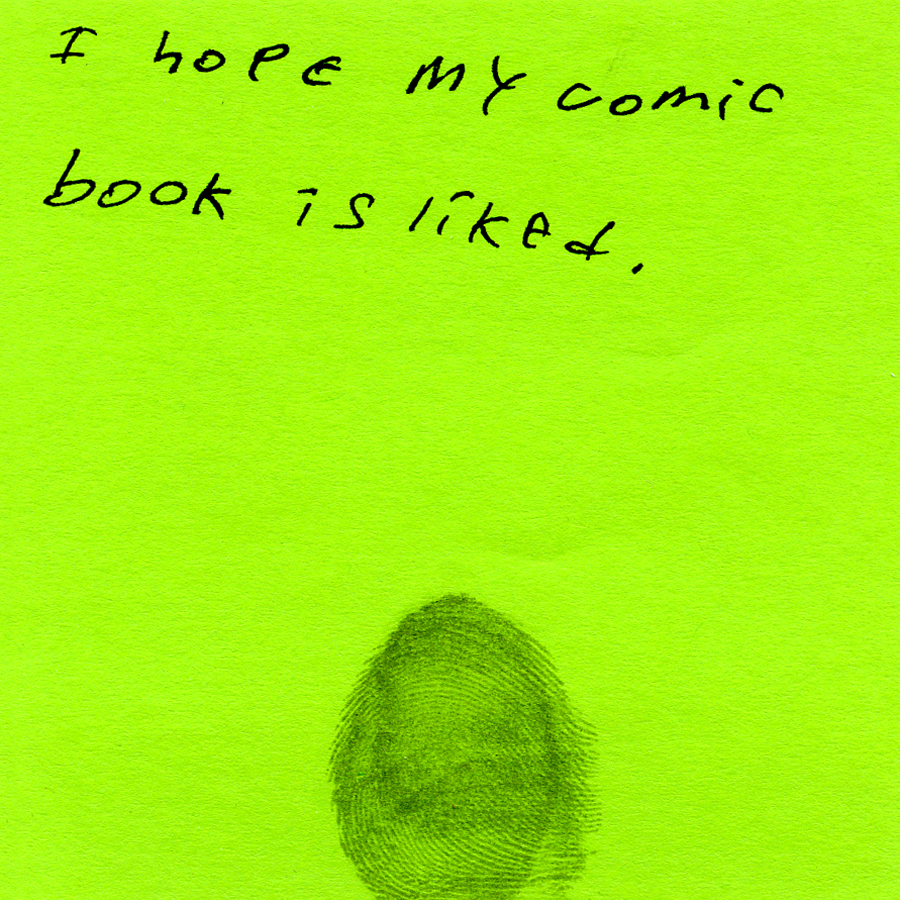 I hope my comic
book is liked.